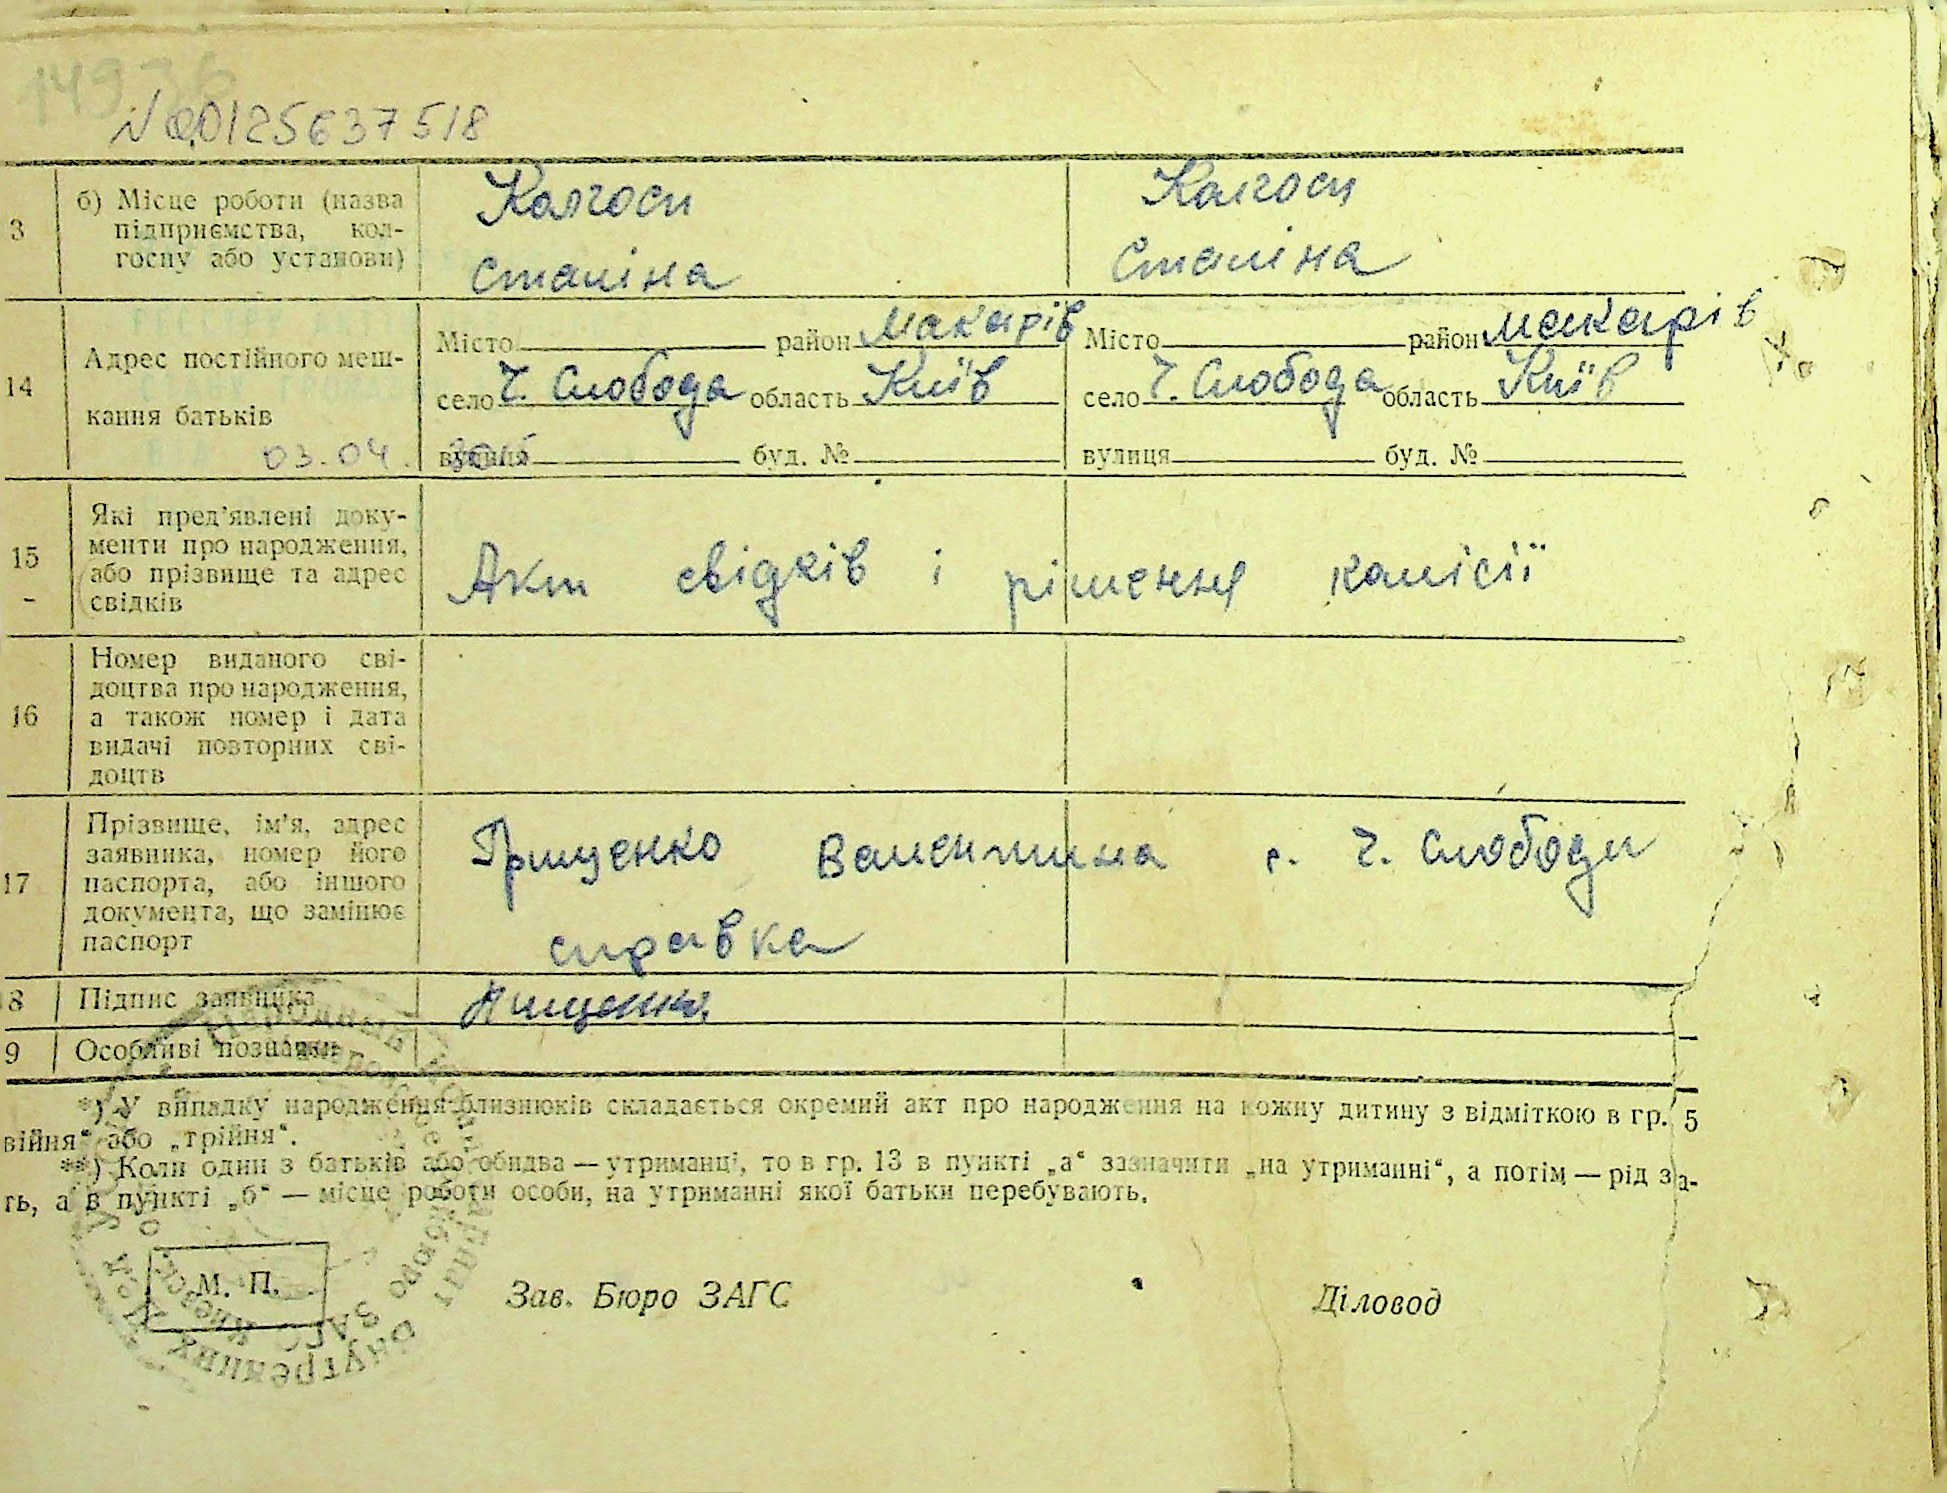 14936
№00125637518
3 б) Місце роботи (назва підприємства, кол-
госпу або установи)
Колгосп Сталіна
Колгосп Сталіна
14 Адрес постійного меш-
кання батьків
Місто район Макарів
село Ч. Слобода область Київ
вулиця буд. №
Місто район Макарів
село Ч. Слобода область Київ
вулиця буд. №
03.04.
15 Які пред'явлені доку-
менти про народження,
або прізвище та адрес
свідків
Акт свідків і рішення комісії
16 Номер виданого сві-
доцтва про народження,
а також номер і дата
видачі повторних сві-
доцтв
17 Прізвище, ім'я, адрес
заявника, номер його
паспорта, або іншого
документа, що замінює
паспорт
Грищенко Валентина с. Ч. Слободи
справка
8 Підпис заявника
9 Особливі познаки
*) У випадку народження близнюків складається окремий акт про народження на кожну дитину з відміткою в гр. 5
війня" або „трійня".
**) Коли один з батьків або обидва — утриманці, то в гр. 13 в пункті „а" зазначити „на утриманні", а потім — рід за-
ть, а в пункті „б" — місце роботи особи, на утриманні якої батьки перебувають.
М. П.
Зав. Бюро ЗАГС
Діловод